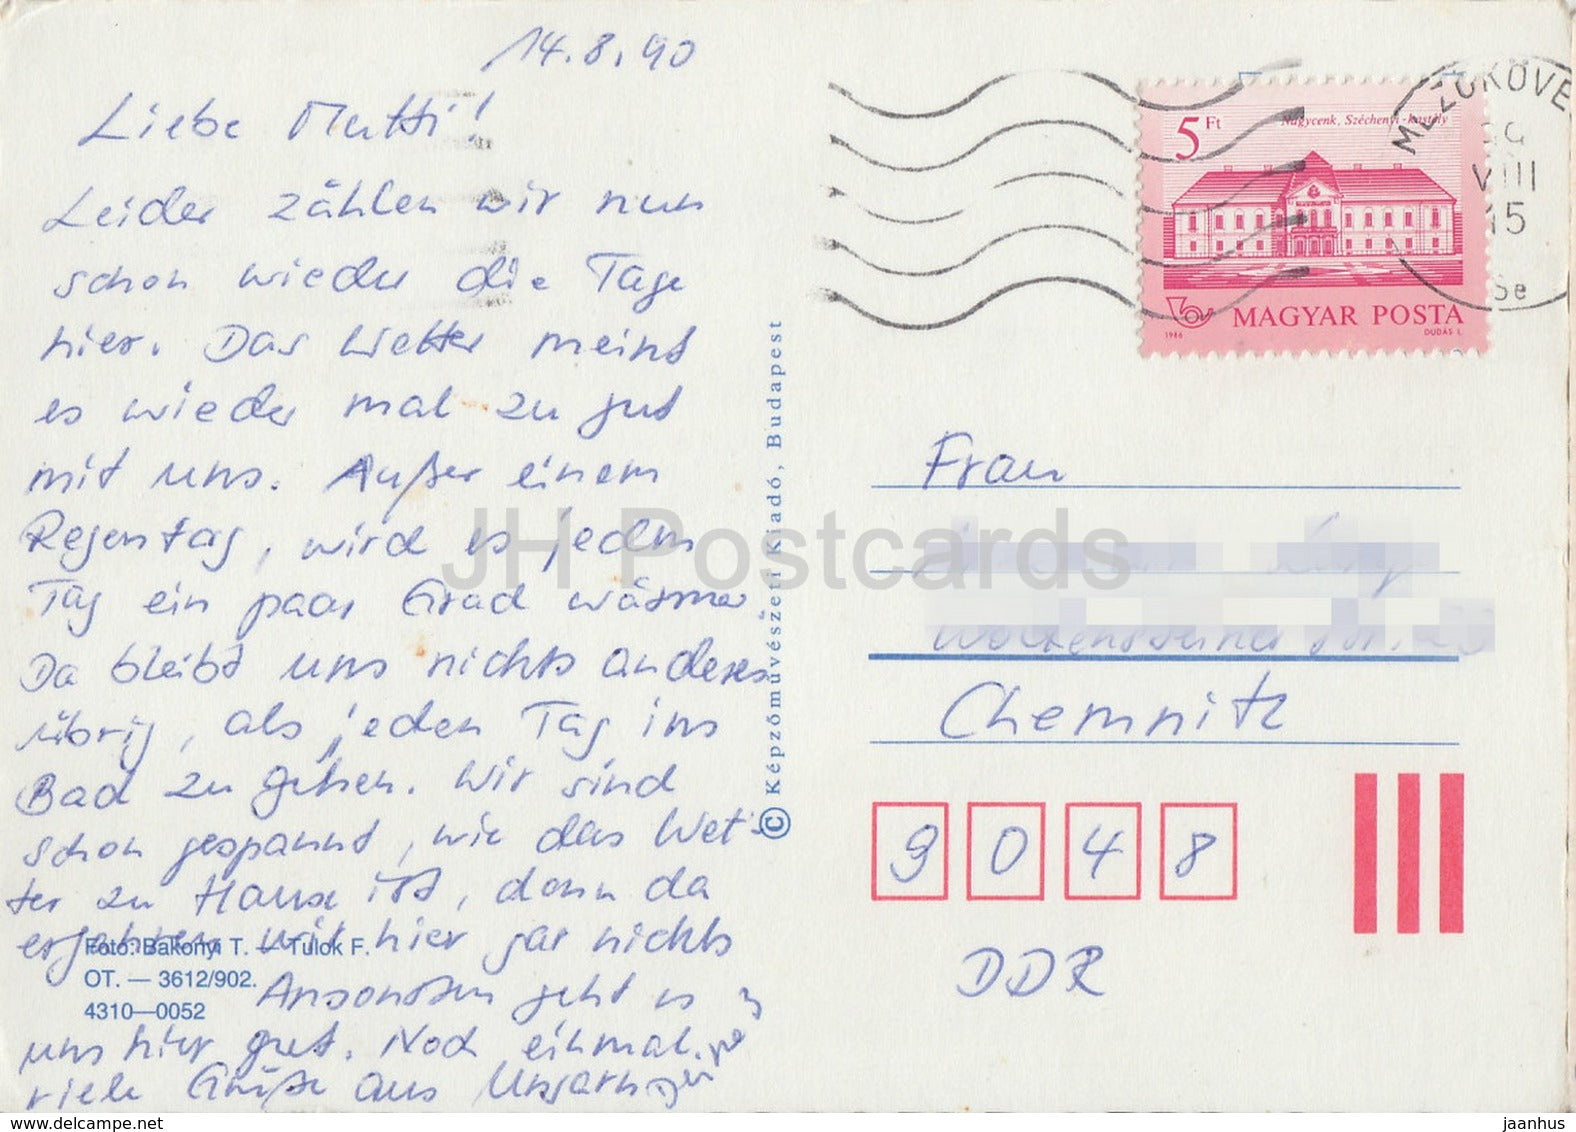 14.8.90
Liebe Mutti!
Leider zählen wir nun
schon wieder die Tage
hier. Das Wetter meint
es wieder mal zu gut
mit uns. Außer einem
Regentag, wird es jeden
Tag ein paar Grad wärmer
Da bleibt uns nichts anderes
übrig, als jeden Tag ins
Bad zu gehen. Wir sind
schon gespannt, wie das Wet-
ter zu Hause ist, denn da
erfahren wir hier gar nichts
Ansonsten geht es
uns hier gut. Noch einmal
viele Grüße aus Ungarn
Foto: Bakonyi T. — Tulok F.
OT. — 3612/902.
4310—0052
© Képzőművészeti Kiadó, Budapest
5 Ft
Nagycenk, Széchenyi-kastély
MAGYAR POSTA
1986
DUDÁS L.
MEZŐKÖVE
VIII
15
Frau
Chemnitz
9048
DDR
JH Postcards
www.delcampe.net
jaanhus